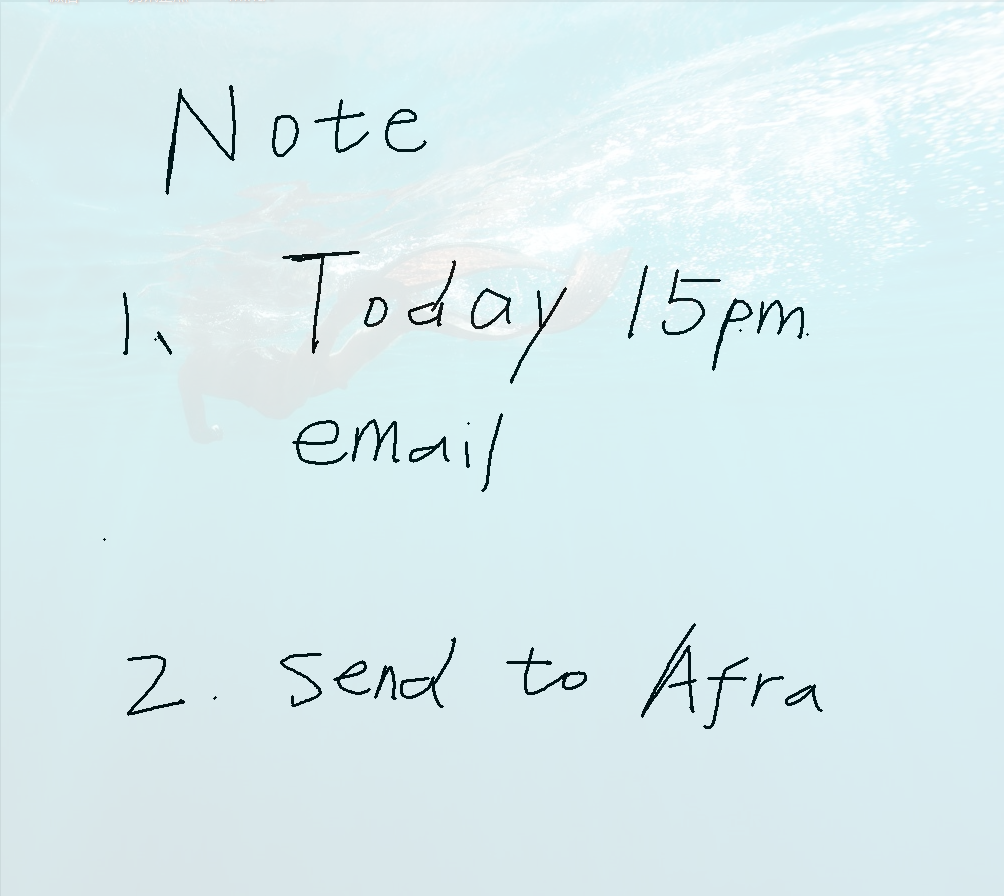 Note
1、 Today 15pm
email
2. Send to Afra